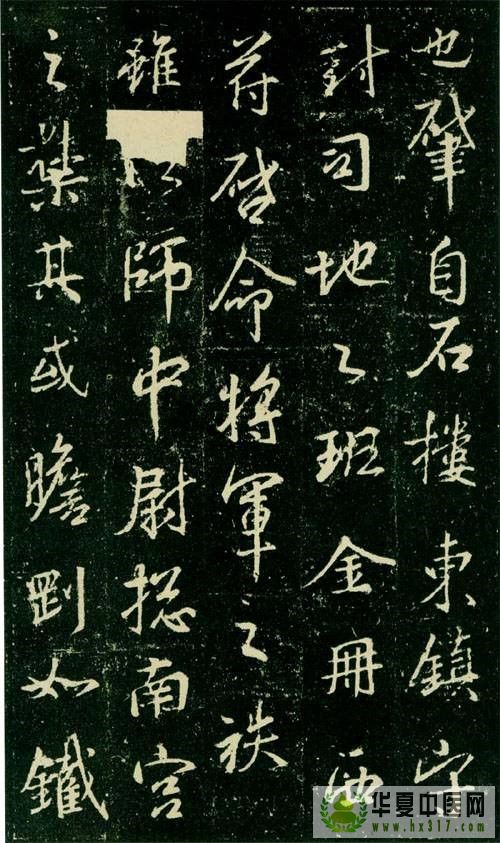 也肇自石樓東鎮守
封司地之班金冊西
符啓命將軍之袟
雖師中尉揔南宮
之其或膽剛如鐵
华夏中医网
www.hx317.com